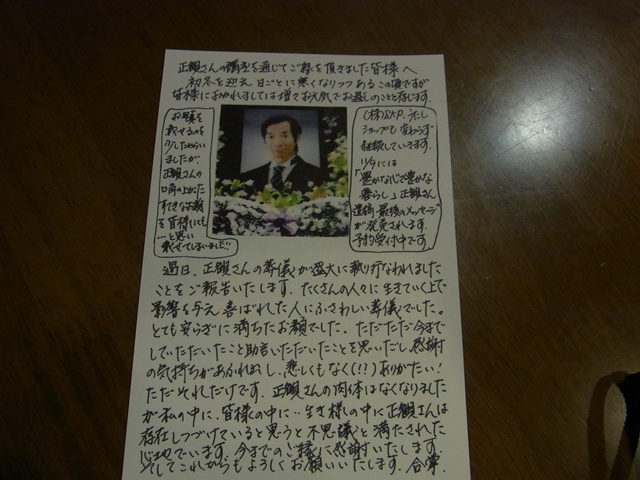 正観さんの講座を通じてご縁を頂きました皆様へ
初冬を迎え 日ごとに寒くなりつつあるこの頃ですが
皆様におかれましては増々お元気でお過しのことと存じます。
お顔を
載せるのを
少しためらい
ましたが
正観さんの
口角の上がった
すてきなお顔
を皆様にも
…と思い
載せてしまいました!!
(株)SKP、うたし
ショップも変わらず
継続しています。
11/9には
「豊かな心で豊かな
暮らし」正観さん
遺稿 最後のメッセージ
が発売されます。
予約受付中です
過日、正観さんの葬儀が盛大に執り行なわれました
ことをご報告いたします。たくさんの人々に生きていく上で
影響を与え 喜ばれた人にふさわしい葬儀でした。
とても安らぎに満ちたお顔でした。ただただ今まで
していただいたこと助言いただいたことを思いだし感謝
の気持ちがあふれだし、悲しくもなく(!!)ありがたい!
ただそれだけです。正観さんの肉体はなくなりました
が私の中に、皆様の中に…生き様の中に正観さんは
存在しつづけていると思うと不思議と満たされた
心地でいます。今までのご縁に感謝いたします。
そしてこれからもよろしくお願いいたします。合掌